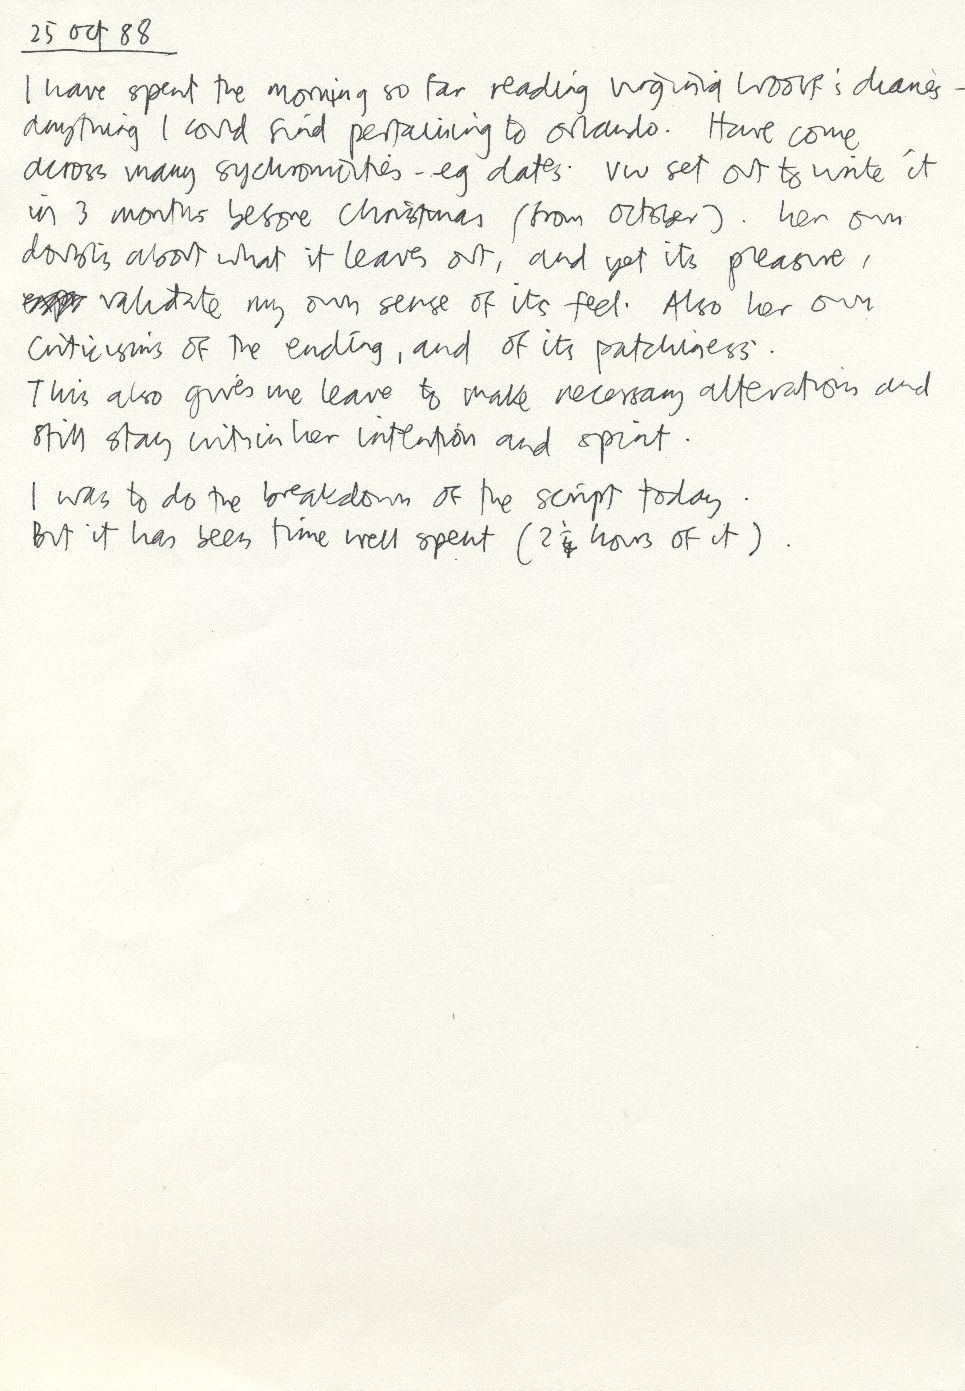 25 Oct 88
I have spent the morning so far reading Virginia Woolf's diaries -
anything I could find pertaining to Orlando. Have come
across many sychronicities - eg dates. VW set out to write it
in 3 months before Christmas (from October). Her own
doubts about what it leaves out, and yet its pleasure,
validate my own sense of its feel. Also her own
criticisms of the ending, and of its patchiness.
This also gives me leave to make necessary alterations and
still stay within her intention and spirit.
I was to do the breakdown of the script today.
But it has been time well spent (2 hours of it).